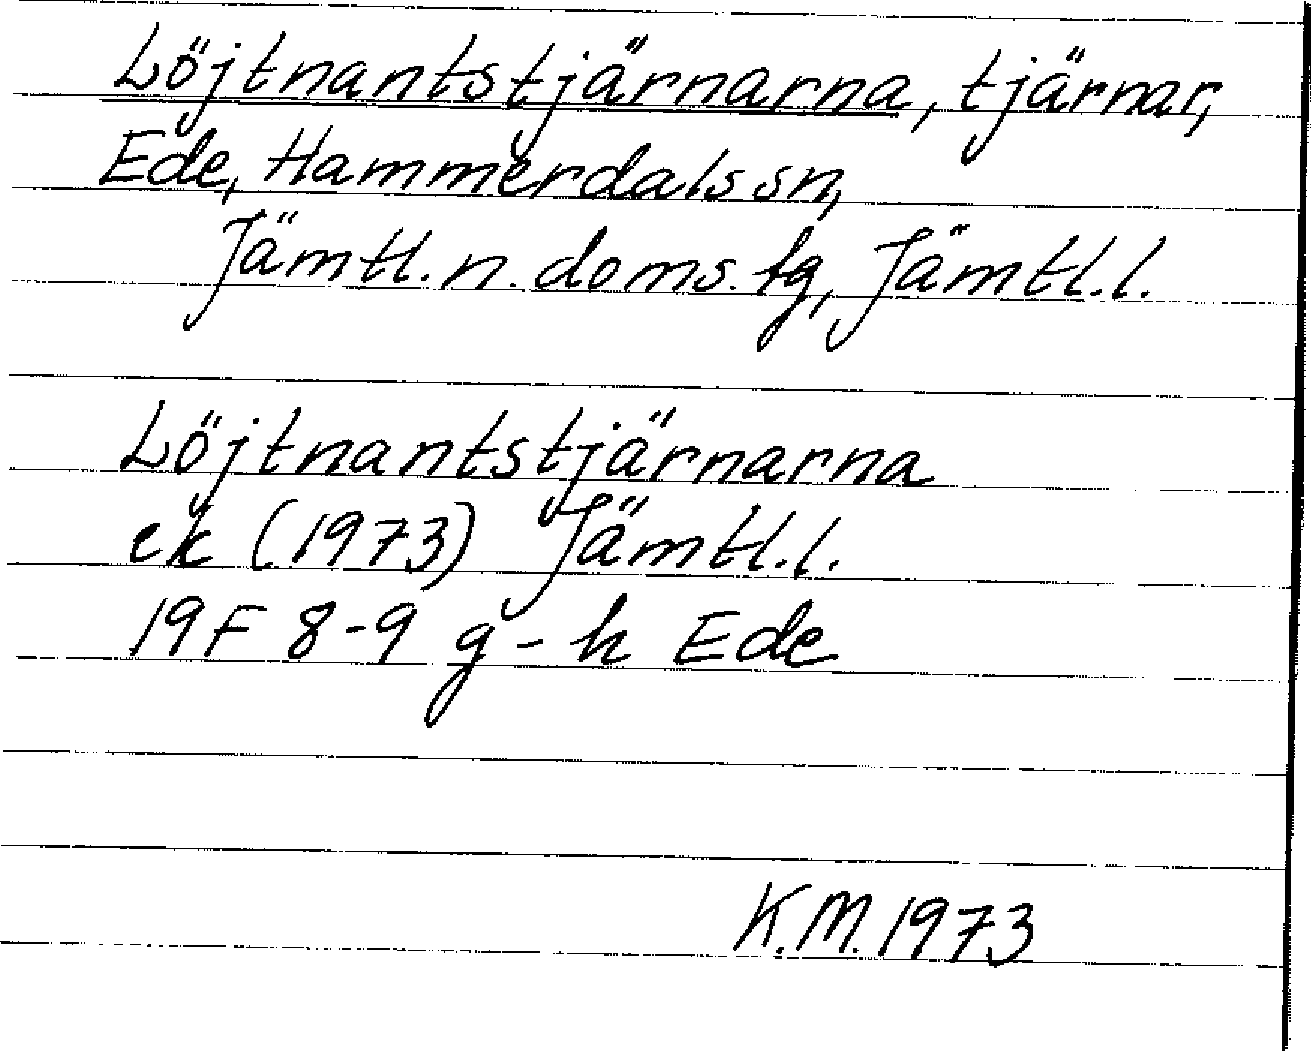 Löjtnantstjärnarna, tjärnar,
Ede, Hammerdals sn,
Jämtl. n. doms. tg, Jämtl. l.
Löjtnantstjärnarna
ek (1973) Jämtl. l.
19F 8-9 g-h Ede
K.M. 1973